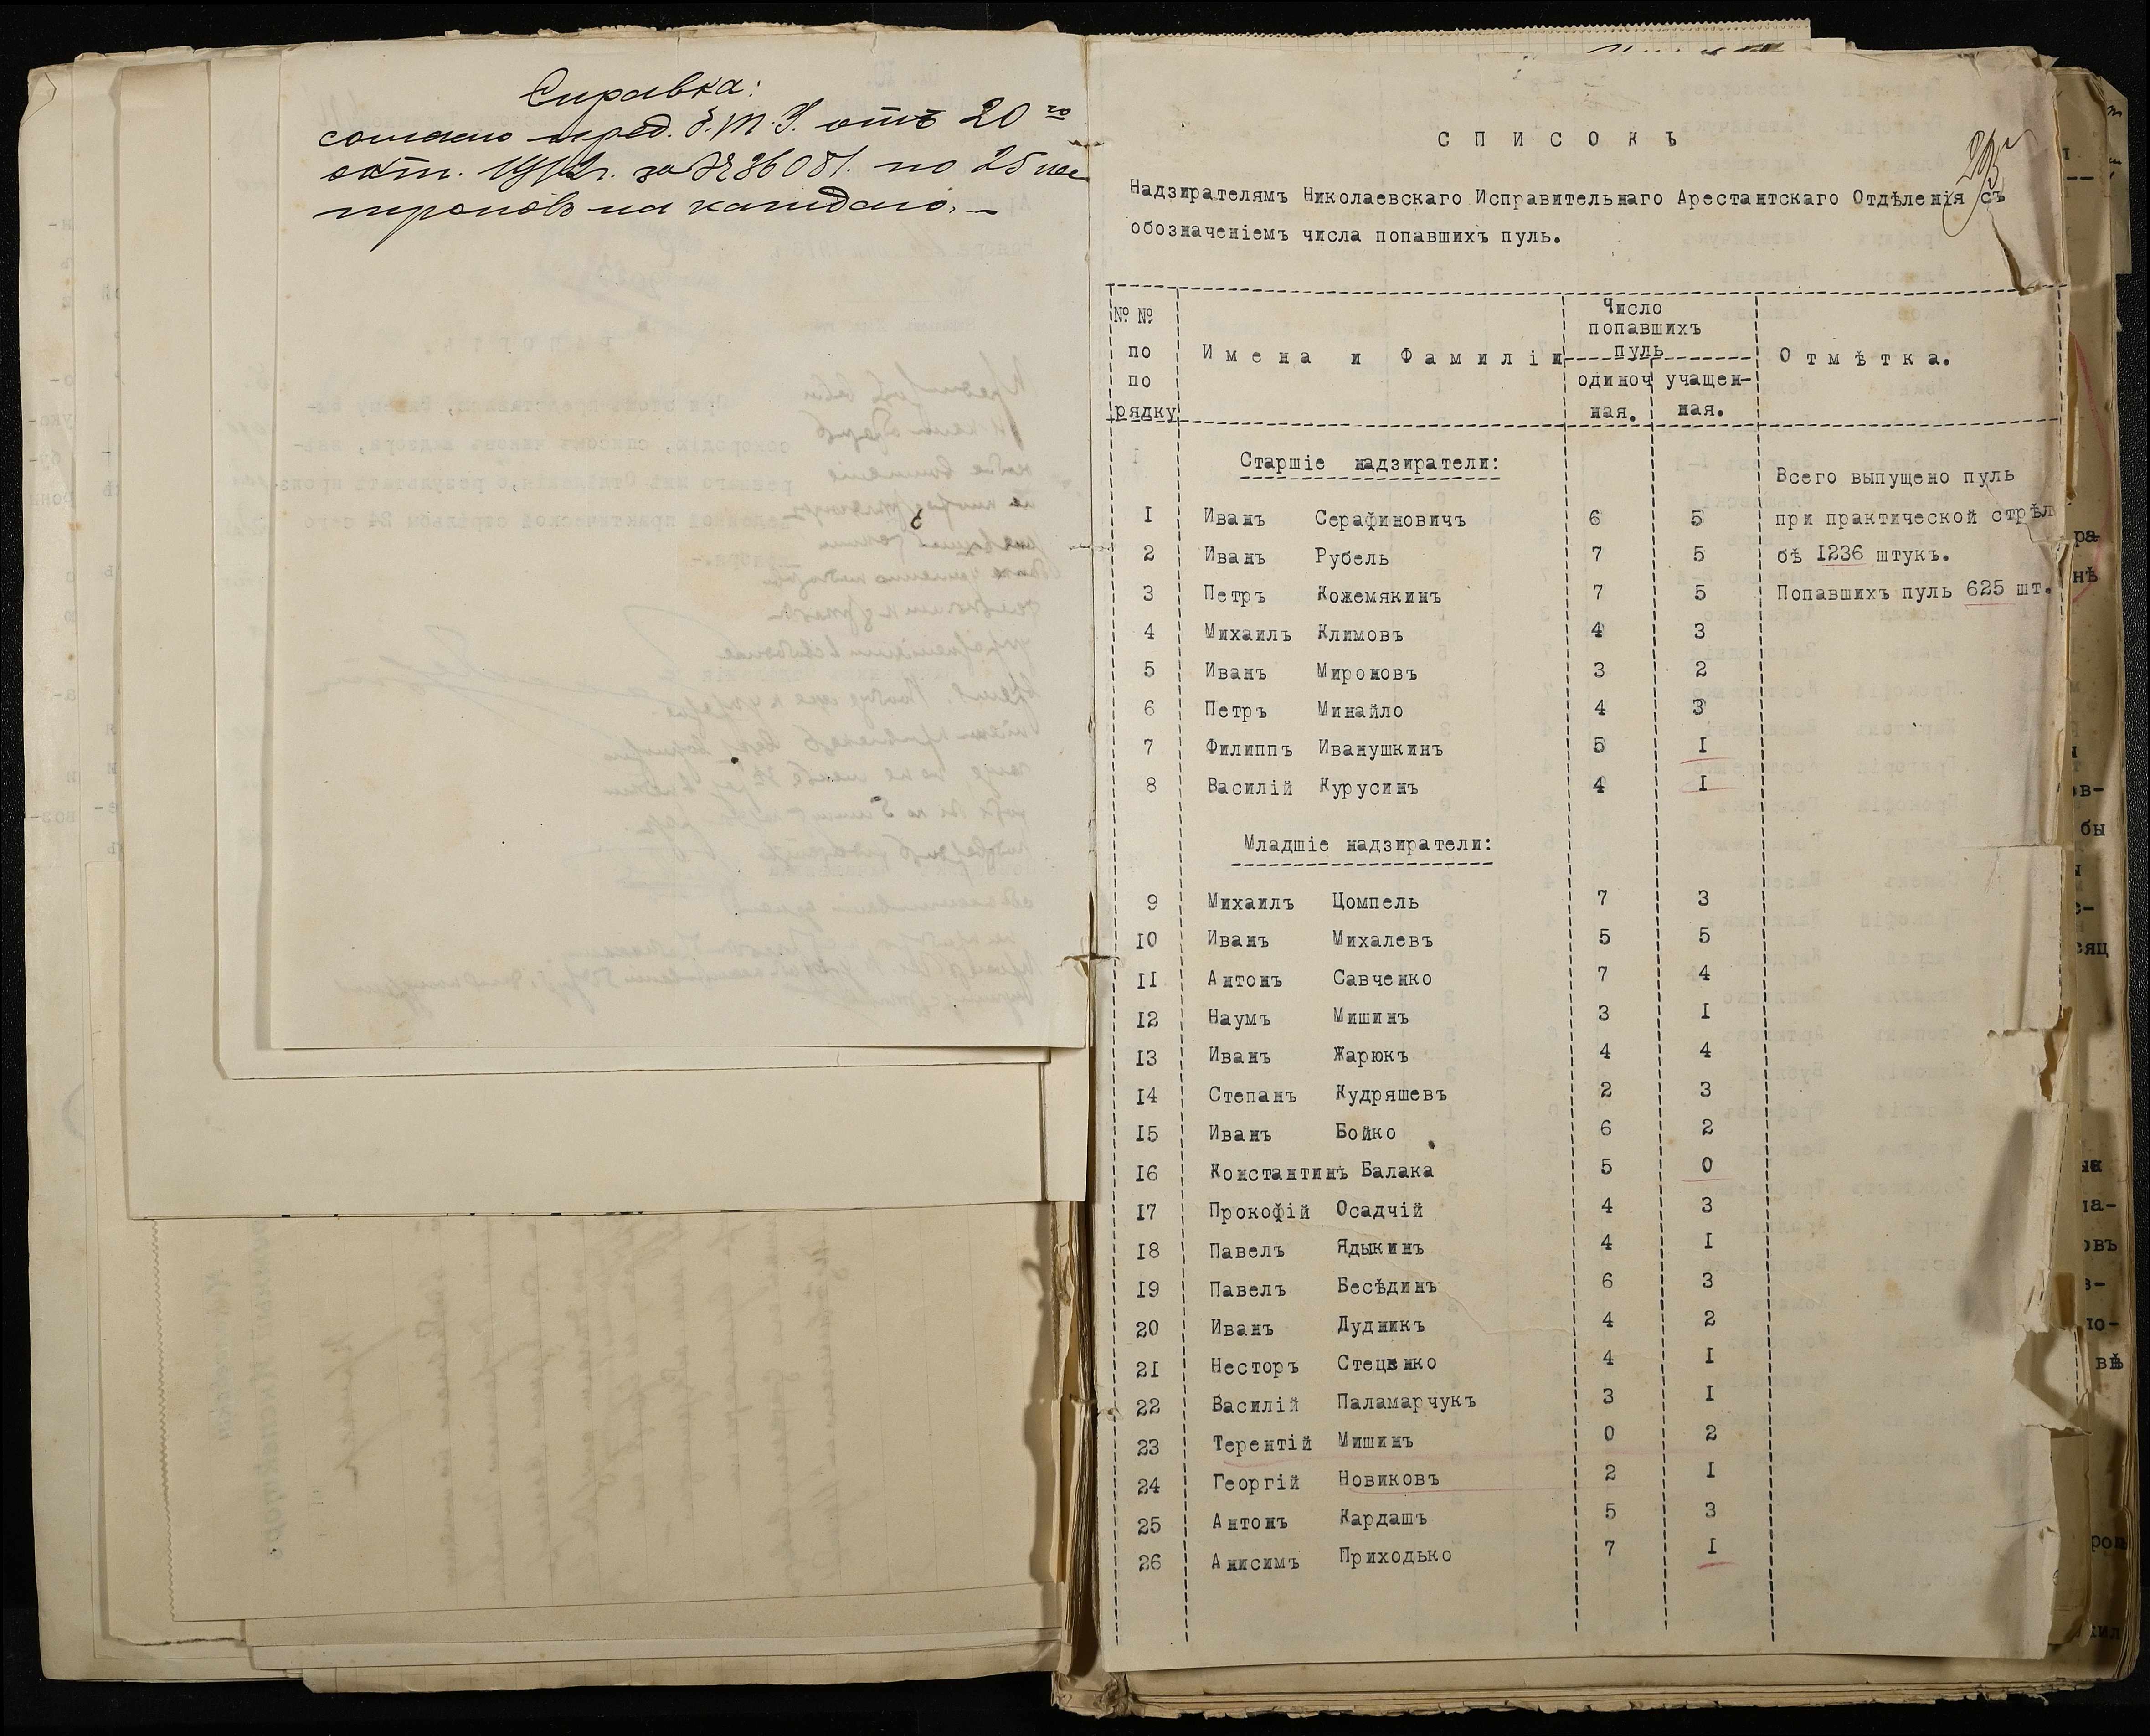 Справка:
согласно пред. Г.Т.У. отъ 20 го
окт. 1912г. за № 36081. по 25 па
троновъ на каждаго. –
СПИСОКЪ
Надзирателямъ Николаевскаго Исправительнаго Арестантскаго Отдѣленія съ
обозначеніемъ числа попавшихъ пуль.
№ № по порядку
Имена и Фамиліи
Число попавшихъ пуль
одиночная.
учащенная.
Отмѣтка.
Старшіе надзиратели:
Всего выпущено пуль
I Иванъ Серафиновичъ 6 5 при практической стрѣл
2 Иванъ Рубель 7 5 бѣ I236 штукъ.
3 Петръ Кожемякинъ 7 5 Попавшихъ пуль 625 шт.
4 Михаилъ Климовъ 4 3
5 Иванъ Мироновъ 3 2
6 Петръ Минайло 4 3
7 Филиппъ Иванушкинъ 5 I
8 Василій Курусинъ 4 I
Младшіе надзиратели:
9 Михаилъ Цомпель 7 3
I0 Иванъ Михалевъ 5 5
II Антонъ Савченко 7 4
I2 Наумъ Мишинъ 3 I
I3 Иванъ Жарюкъ 4 4
I4 Степанъ Кудряшевъ 2 3
I5 Иванъ Бойко 6 2
I6 Константинъ Балака 5 0
I7 Прокофій Осадчій 4 3
I8 Павелъ Ядыкинъ 4 I
I9 Павелъ Бесѣдинъ 6 3
20 Иванъ Дудникъ 4 2
2I Несторъ Стеценко 4 I
22 Василій Паламарчукъ 3 I
23 Терентій Мишинъ 0 2
24 Георгій Новиковъ 2 I
25 Антонъ Кардашъ 5 3
26 Анисимъ Приходько 7 I